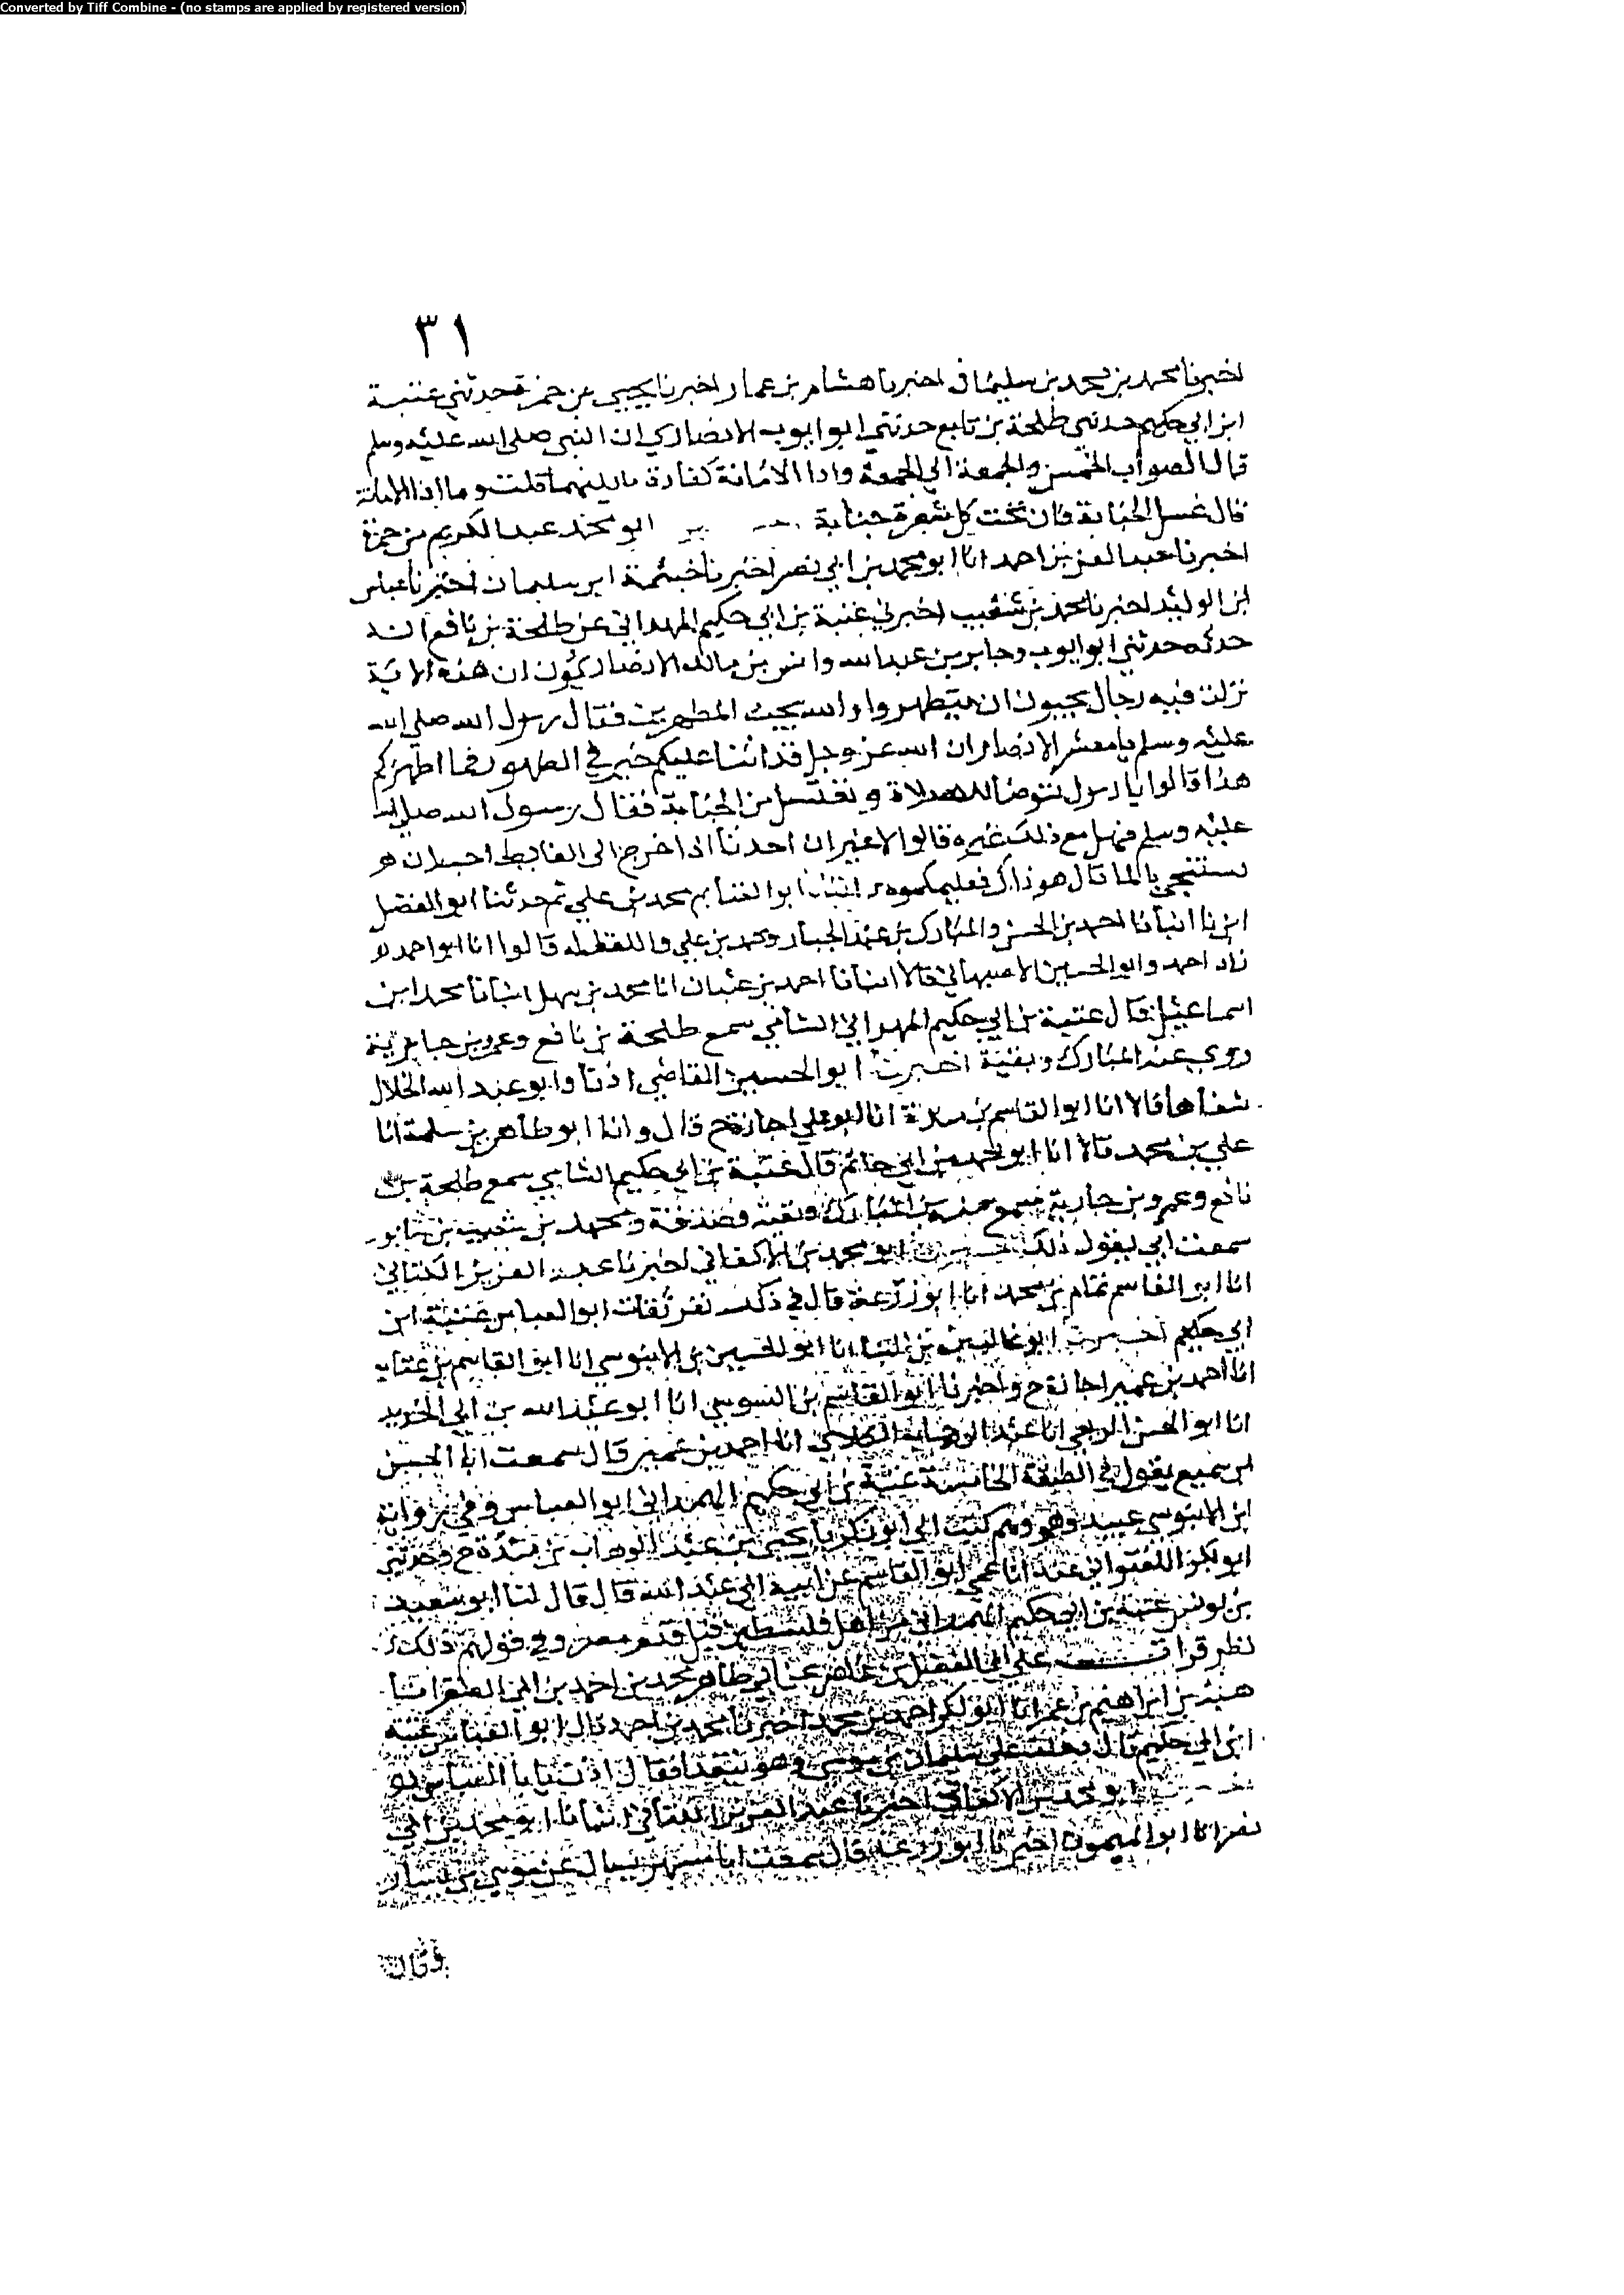 Converted by Tiff Combine - (no stamps are applied by registered version)
٣١
اخبرنا محمد بن محمد بن سليمان اخبرنا هشام بن عمار اخبرنا يحيى بن حمزة حدثني عتبة
ابن ابي حكيم حدثني طلحة بن نافع حدثني ابو ايوب الانصاري ان النبي صلى الله عليه وسلم
قال الصلوات الخمس والجمعة الى الجمعة وادا الامانة كفارة ما بينهما قلت وما ادا الامانة
قال غسل الجنابة فان تحت كل شعرة جنابة ابو محمد عبد الكريم بن حمزة
اخبرنا عبد العزيز بن احمد انا ابو محمد بن ابي نصر اخبرنا خيثمة ابن سليمان اخبرنا عباس
ابن الوليد اخبرنا محمد بن شعيب اخبرني عتبة بن ابي حكيم الهمداني عن طلحة بن نافع انه
حدثه حدثني ابو ايوب وجابر بن عبد الله وانس بن مالك الانصاريون ان هذه الاية
نزلت فيه رجال يحبون ان يتطهروا والله يحب المطهرين فقال رسول الله صلى الله
عليه وسلم يا معشر الانصار ان الله عز وجل قد اثنا عليكم خير في الطهور فما اطهركم
هذا قالوا يا رسول نتوضا للصلاة ونغتسل من الجنابة فقال رسول الله صلى الله
عليه وسلم فهل مع ذلك غيره قالوا لا غير ان احدنا اذا خرج الى الغايط احب ان هو
يستنجي بالما قال هو ذاك فعليكموه انبانا ابو الغنايم محمد بن علي ثم حدثنا ابو الفضل
ابن نا انبانا احمد بن الحسن والمبارك بن عبد الجبار ومحمد بن علي واللفظ له قالوا انا ابو احمد
زاد احمد وابو الحسين الاصبهاني قالا انبانا احمد بن عبدان انا محمد بن سهل انبانا محمد ابن
اسماعيل قال عتبة بن ابي حكيم الهمداني الشامي سمع طلحة بن نافع وعمرو بن جارية
روى عنه المبارك وبقية اخبرنا ابو الحسين القاضي اذنا وابو عبد الله الخلال
شفاها قالا انا ابو القاسم بن مندة انا ابو علي اجازة ح قال وانا ابو طاهر بن سلمة انا
علي بن محمد قالا انا ابو محمد بن ابي حاتم قال عتبة بن ابي حكيم الشامي سمع طلحة بن
نافع وعمرو بن جارية سمع منه بن المبارك وبقية وصدقة ومحمد بن شعيب بن شابور
سمعت ابي يقول ذلك اخبرنا ابو محمد بن الاكفاني اخبرنا عبد العزيز الكتاني
انا ابو القاسم تمام بن محمد انا ابو زرعة قال في ذكر نفر ثقات ابو العباس عتبة ابن
ابي حكيم اخبرنا ابو غالب بن البنا انا ابو الحسين بن الابنوسي انا ابو القاسم بن عتاب
انا احمد بن عمير اجازة ح واخبرنا ابو القاسم بن السوسي انا ابو عبد الله بن ابي الحديد
انا ابو الحسن الربعي انا عبد الوهاب الكلابي انا احمد بن عمير قال سمعت ابا الحسن
بن سميع يقول في الطبقة الخامسة عتبة بن ابي حكيم الهمداني ابو العباس وفي رواية
ابن الابنوسي عبيد وهو وهم كتب الي ابو زكريا يحيى بن عبد الوهاب بن مندة ح وحدثني
ابو بكر اللفتواني عنه انا عمي ابو القاسم عن ابيه ابي عبد الله قال قال لنا ابو سعيد
بن يونس عتبة بن ابي حكيم الهمداني من اهل فلسطين قيل قدم مصر وفي قولهم ذلك
نظر قرات على ابي الفضل بن ناصر عن ابي طاهر محمد بن احمد بن ابي الصقر انا
هبة بن ابراهيم بن عمر انا ابو بكر احمد بن محمد اخبرنا محمد بن احمد قال ابو العباس عتبة
ابن ابي حكيم قال دخلت على سليمان بن موسى وهو يتغدا فقال اذن يا با العباس
ابو محمد بن الاكفاني اخبرنا عبد العزيز الكتاني انبانا ابو محمد بن ابي
نصر انا ابو الميمون اخبرنا ابو زرعة قال سمعت ابا مسهر يسال عن موسى بن يسار
وقال